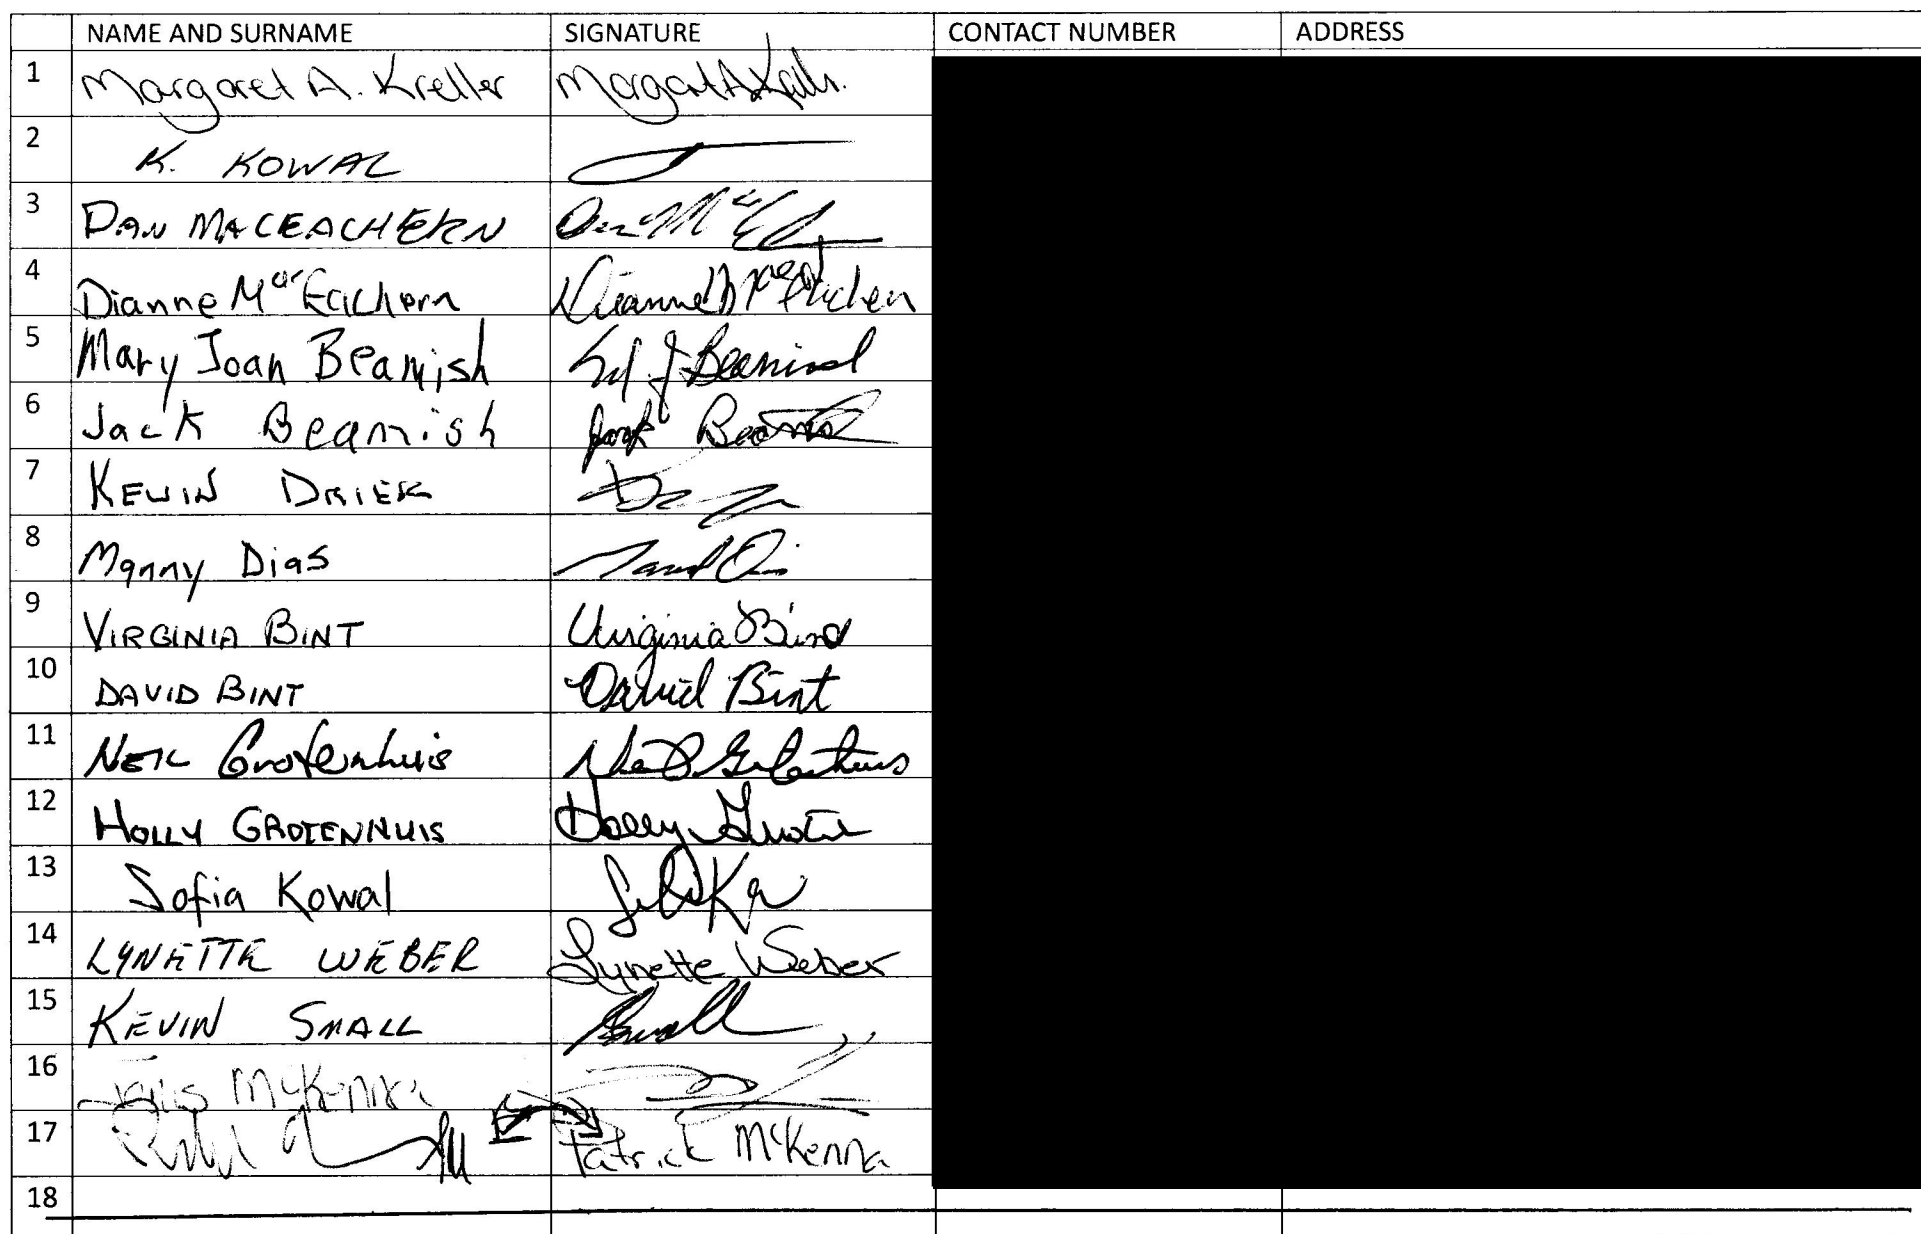 NAME AND SURNAME SIGNATURE CONTACT NUMBER ADDRESS
1 Margaret A. Kreller
2 K. KOWAL
3 DAN MACEACHERN
4 Dianne MacEachern
5 Mary Joan Beamish M J Beamish
6 Jack Beamish Jack Beamish
7 KEVIN DRIER
8 Manny Dias
9 VIRGINIA BINT Virginia Bint
10 DAVID BINT David Bint
11 NEIL Grotenhuis
12 HOLLY GROTENHUIS Holly
13 Sofia Kowal
14 LYNETTE WEBER Lynette Weber
15 KEVIN SMALL
16 McKenna
17 Patrick McKenna
18